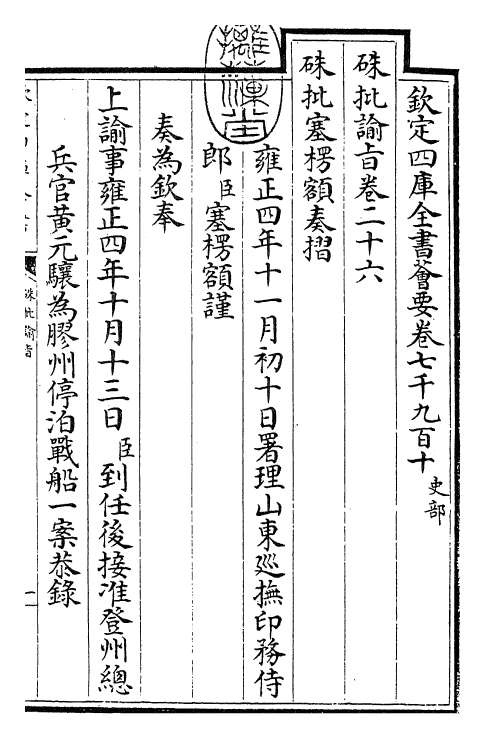 欽定四庫全書薈要卷七千九百十 史部
硃批諭旨卷二十六
硃批塞楞額奏摺
雍正四年十一月初十日署理山東廵撫印務侍
郎臣塞楞額謹
奏為欽奉
上諭事雍正四年十月十三日臣到任後接准登州總
兵官黄元驤為膠州停泊戰船一案恭錄
硃批諭旨
一